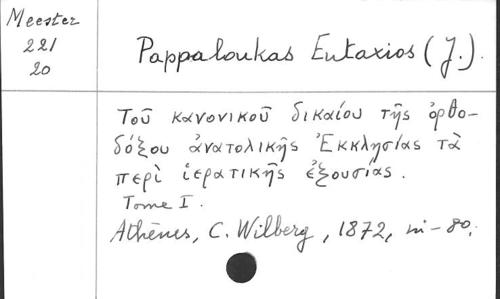 Meester
221
20
Pappaloukas Eutaxios (J.).
Τοῦ κανονικοῦ δικαίου τῆς ὀρθο-
δόξου ἀνατολικῆς Ἐκκλησίας τὰ
περὶ ἱερατικῆς ἐξουσίας.
Tome I.
Athènes, C. Wilberg, 1872, in-8o.